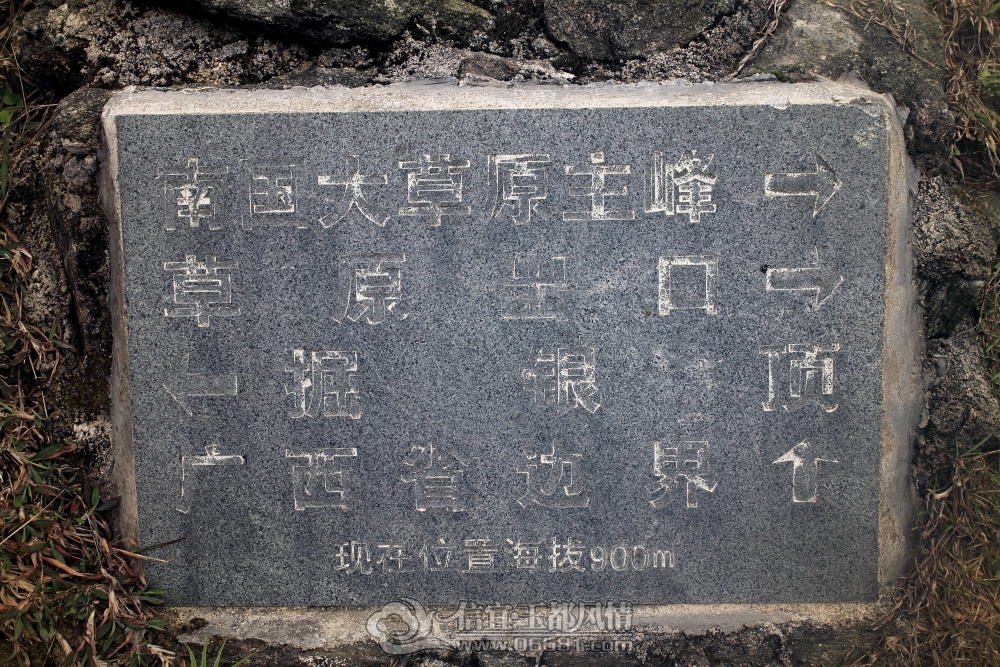 南国大草原主峰→
草原出口→
←掘银顶
广西省边界↑
现在位置海拔900m
信宜玉都风情
www.06681.com